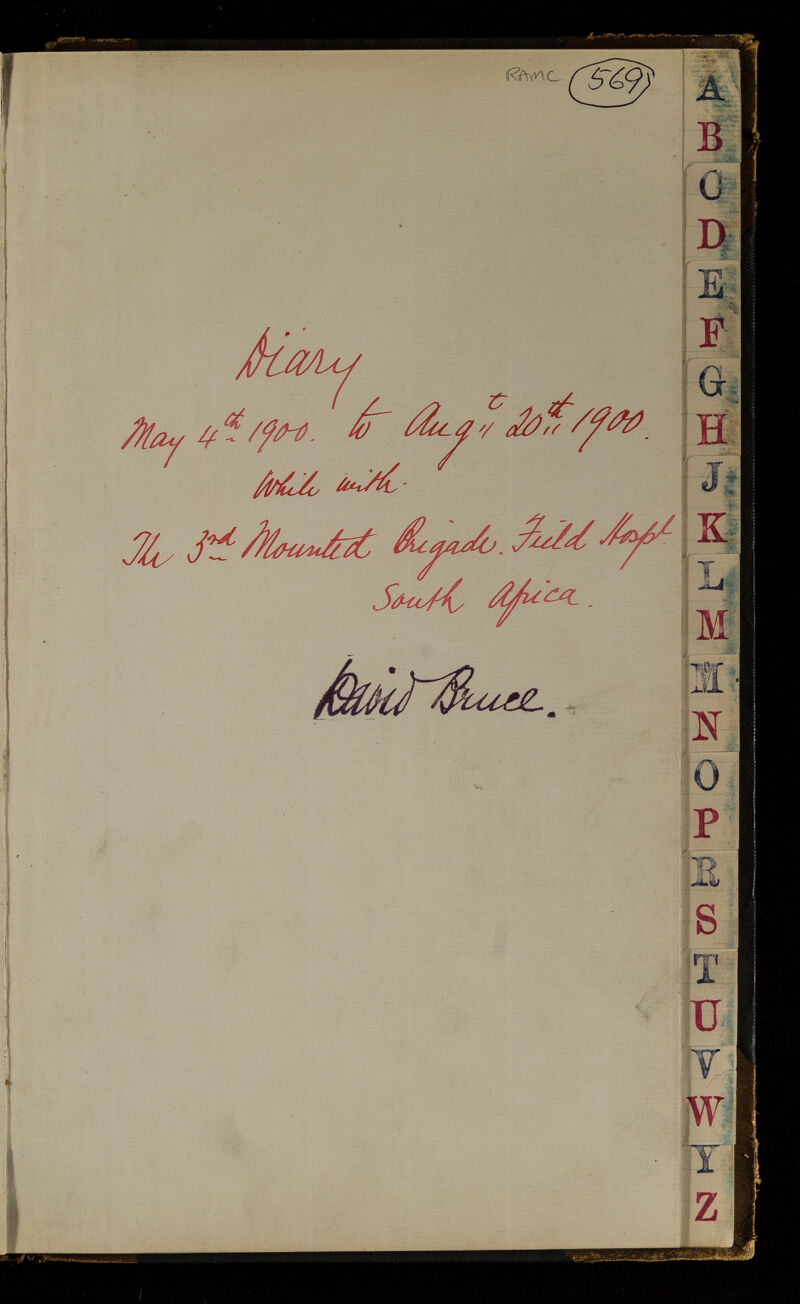 RAMC 569
Diary
May 4th 1900. to Augt 20th 1900.
While with.
The 3rd Mounted Brigade. Field Hospt.
South Africa.
David Bruce.
A
B
C
D
E
F
G
H
J
K
L
M
M
N
O
P
R
S
T
U
V
W
Y
Z